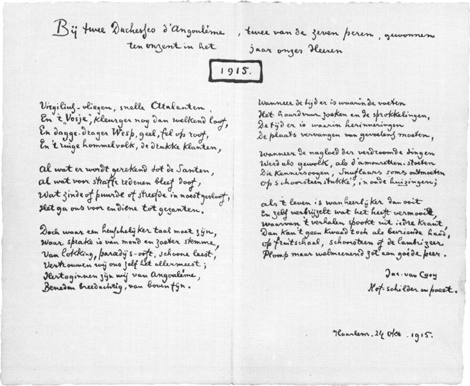 Bij twee Duchesses d'Angoulême, twee van de zeven peren, gewonnen
ten onzent in het jaar onzes Heeren
1915.
Virgilius-vliegen, snelle Atalanten
En 't Vosje, kleuriger nog dan welkend loof,
En dagge-drager Wesp, geel, fel op roof,
En 't ruige hommelvolk, de drukke klanten,
Al wat er wordt gerekend tot de Santen,
Al wat voor straffe redenen bleef doof,
Wat zinde of puurde of streefde in noest geloof,
Het ga ons voor en diëne tot gezanten.
Doch waar een heuschelijker taal moet zijn,
Waar sprake is van mond en zoeter stemme,
Van lokking, paradijs-ooft, schoone leest,
Vertrouwen wij ons zelf het allermeest;
Hertoginnen zijn wij van Angoulême,
Beneden breedachtig, van boven fijn.
Wanneer de tijd er is waarin de voeten
Het haardvuur zoeken en de sprokkelingen,
De tijd er is waarin herinneringen
De plaats vervangen van gevoelens moeten,
Wanneer de nagloed der verdroomde dingen
Werd als gewolk, als d'amoretten-stoeten
Die Kannevoogen, Snuflaars soms ontmoeten
Op schoorsteenstukken, in oude huizingen;
als 't leven is wanheerlijker dan ooit
En zelf verbijzelt wat het heeft vermooit,
Waarvan 't verhalen spookt uit iedre krant,
Dan kan 't geen kwaad zoch als bevriende hand,
op fruitschaal, schoorsteen of de lambrizeer
Plomp maar welmeenend zet een goede peer.
Jac. van Looy
Hof-schilder en poëet.
Haarlem. 24 Okt. 1915.